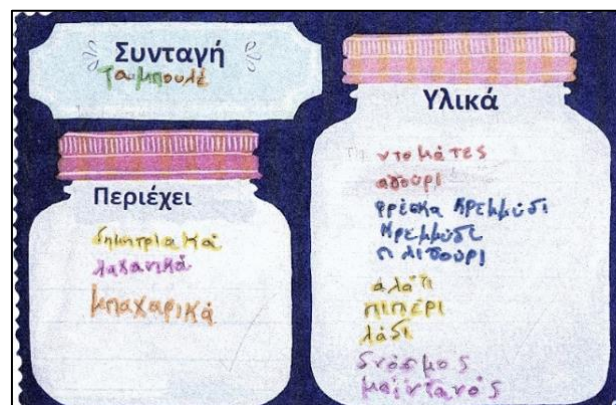 Συνταγή
Ταμπουλέ
Περιέχει
δημητριακά
λαχανικά
μπαχαρικά
Υλικά
ντομάτες
αγουρι
φρέσκα κρεμμύδι
κρεμμύδι
πλιγούρι
αλάτι
πιπέρι
λάδι
δυόσμος
μαϊντανός